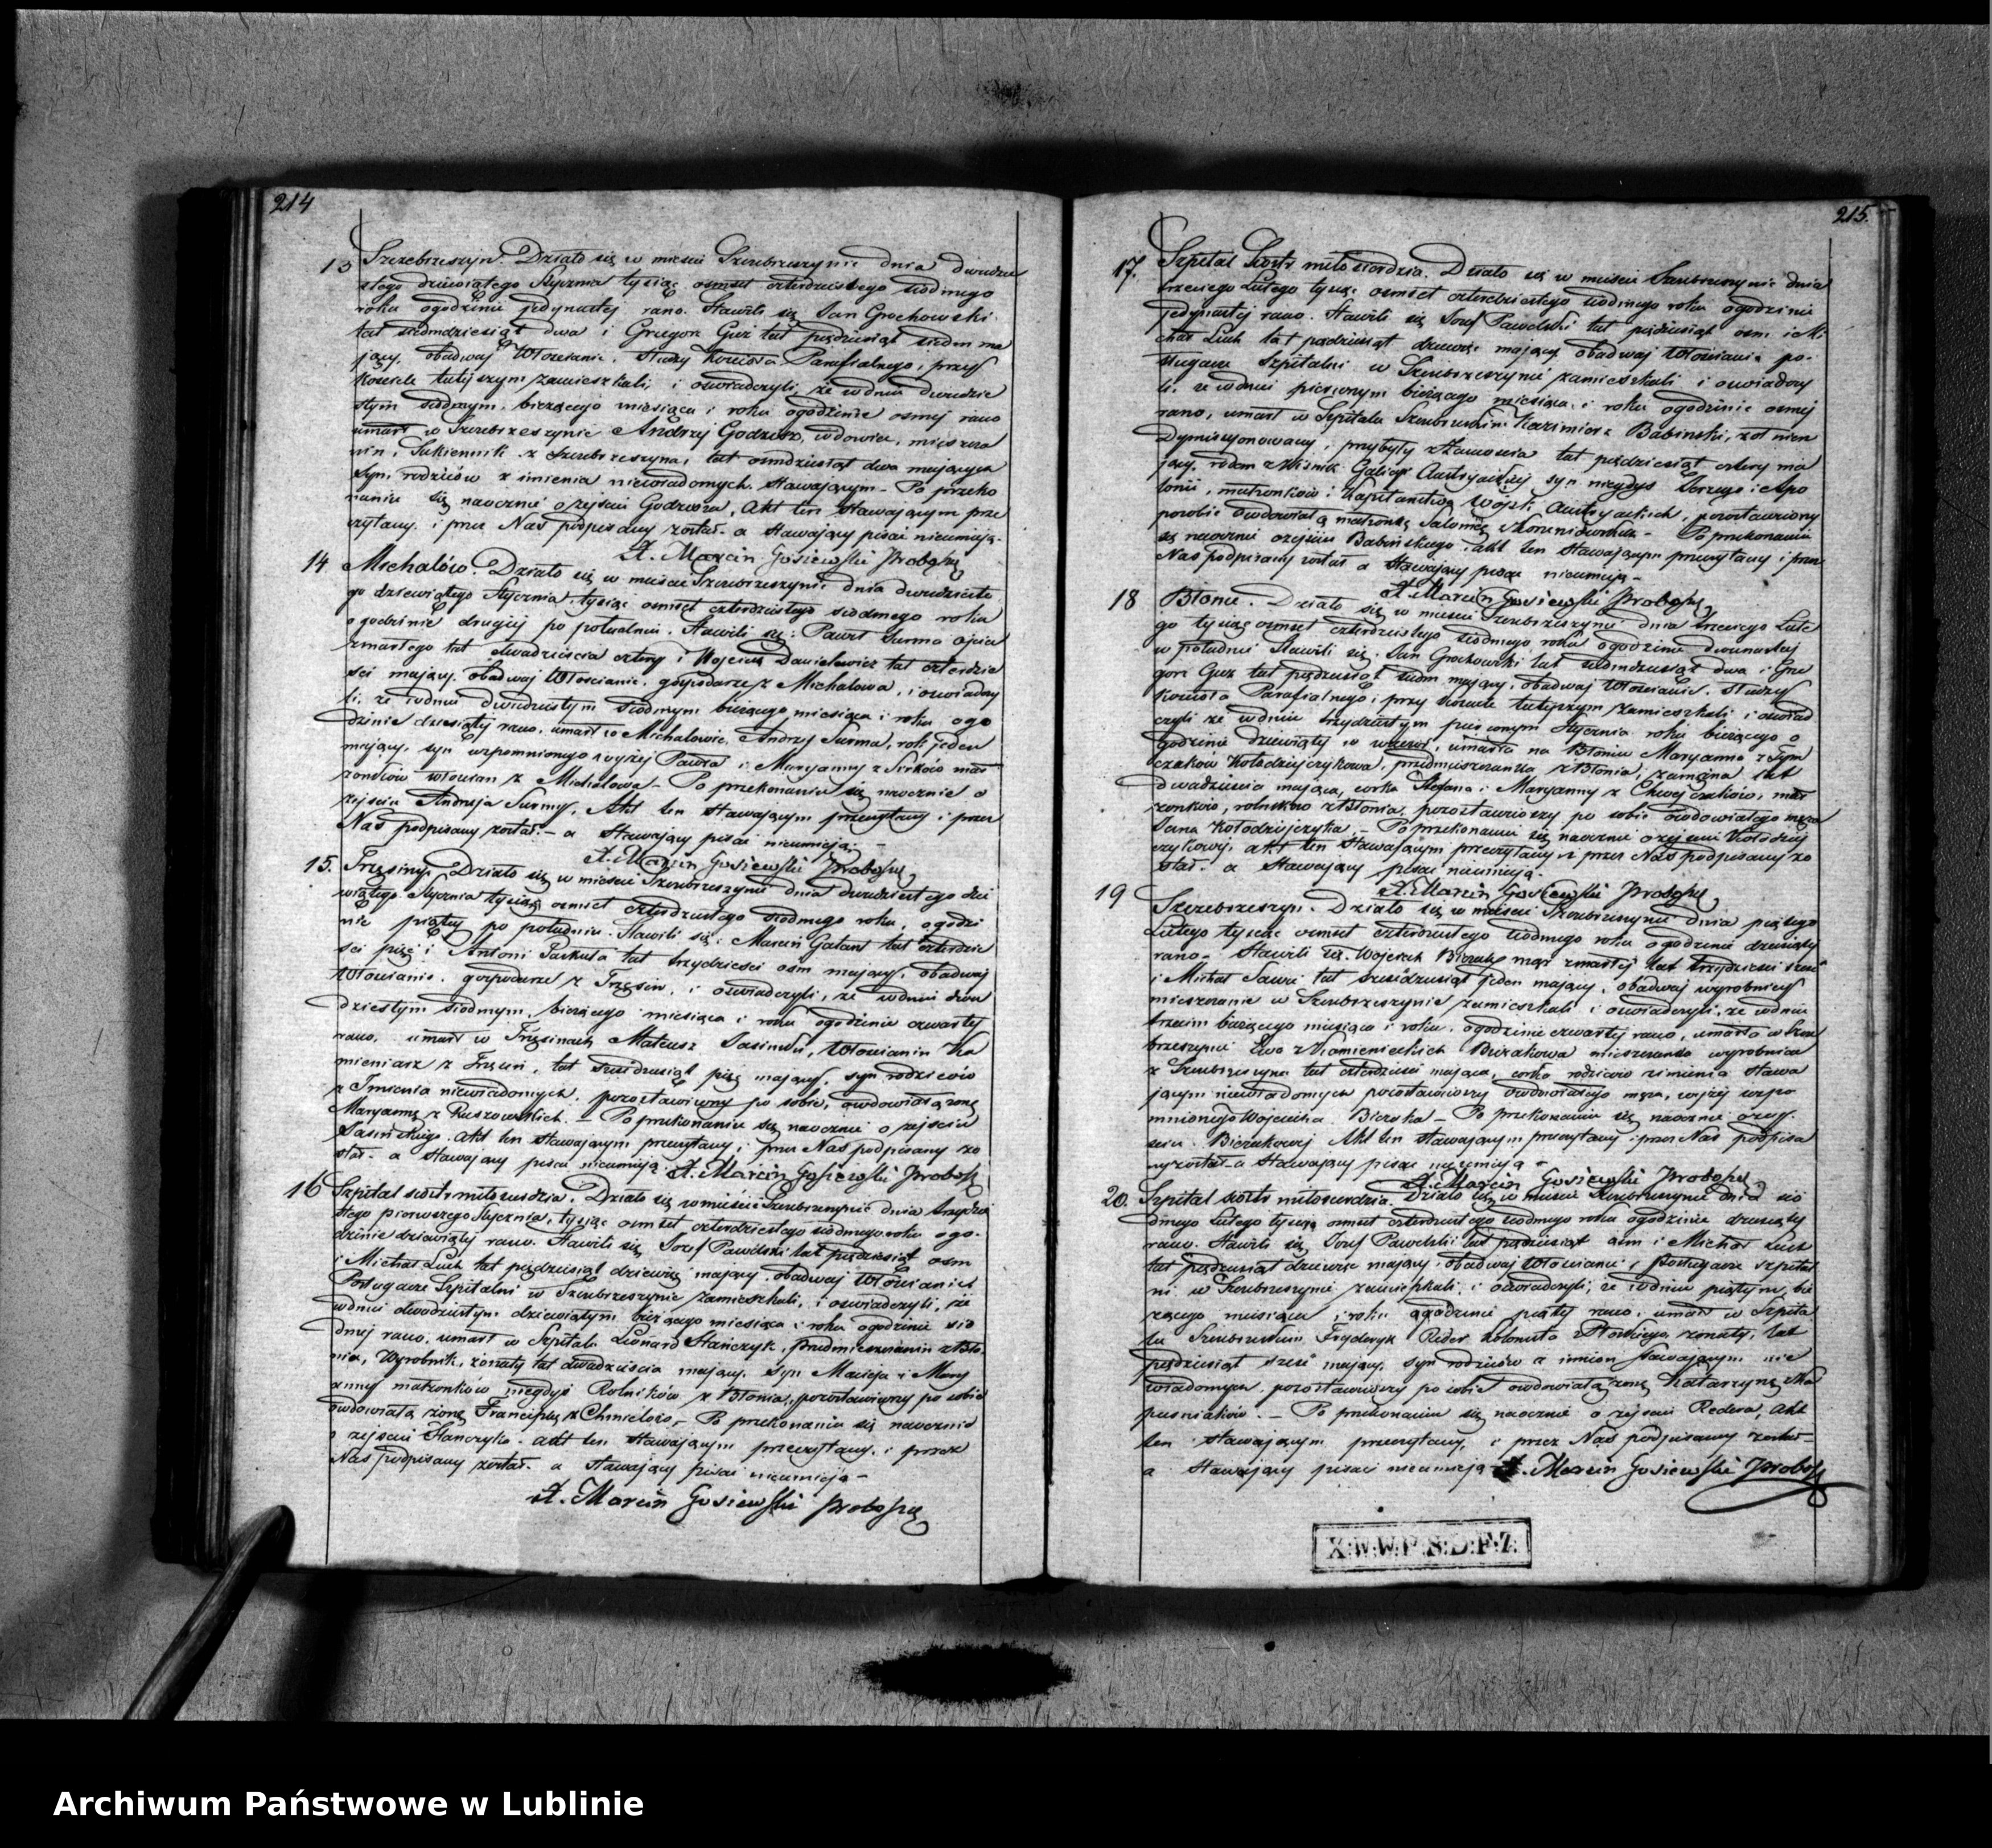 214
13 Szczebrzeszyn. Działo się w mieście Szczebrzeszynie dnia dwudzie
stego dziewiątego Stycznia tysiąc osmset czterdziestego siodmego
roku o godzinie jedynastej rano. Stawili się Jan Grochowski
lat siedmdziesiąt dwa i Grzegorz Guz lat pięćdziesiąt siedm ma
jący, obadwaj Włościanie, Słudzy Kościoła Parafialnego, przy
Kościele tutejszym zamieszkali; i oświadczyli, że w dniu dwudzie
stym siodmym, bieżącego miesiąca i roku o godzinie osmej rano
umarł w Szczebrzeszynie Andrzej Godzisz, wdowiec, mieszcza
nin, Sukiennik z Szczebrzeszyna, lat osmdziesiąt dwa mający
Syn, rodziców z imienia niewiadomych. Stawającym - Po przeko
naniu się naocznie o zejściu Godzisza, Akt ten Stawającym prze
czytany, i przez Nas podpisany został - a Stawający pisać nieumieją.
X. Marcin Gosiewski Proboszcz
14 Michalów. Działo się w mieście Szczebrzeszynie dnia dwudzieste
go dziewiątego Stycznia, tysiąc osmset czterdziestego siodmego roku
o godzinie drugiej po południu. Stawili się: Paweł Surma ojciec
zmarłego lat dwadzieścia cztery i Wojciech Danielewicz lat czterdzie
ści mający, obadwaj Włościanie, gospodarze z Michalowa, i oświadczy
li, że w dniu dwudziestym siodmym bieżącego miesiąca i roku o go
dzinie dziesiątej rano, umarł w Michalowie, Andrzej Surma, rok jeden
mający, syn wzpomnionego wyżej Pawła i Maryanny z małż
żonków włościan z Michalowa - Po przekonaniu się naocznie o
zejściu Andrzeja Surmy, Akt ten Stawającym przeczytany i przez
Nas podpisany został. - a Stawający pisać nieumieją. -
X. Marcin Gosiewski Proboszcz
15. Trzęsiny. Działo się w mieście Szczebrzeszynie dnia dwudziestego dzie
wiątego Stycznia tysiąc osmset czterdziestego siodmego roku, o godzi
nie piątej po południu. Stawili się: Marcin Gałant lat czterdzie
ści pięć i Antoni Packuta lat trzydzieści osm mający, obadwaj
Włościanie, gospodarze z Trzęsin, i oświadczyli, że w dniu dwu
dziestym siodmym, bieżącego miesiąca i roku o godzinie czwartej
rano, umarł w Trzęsinach Mateusz Jasiński, Włościanin Ka
mieniarz z Trzęsin, lat sześćdziesiąt pięć mający, syn rodziców
z Imienia niewiadomych, pozostawiwszy po sobie, owdowiałą żonę
Maryannę z Ruszowskich. - Po przekonaniu się naocznie o zejściu
Jasińskiego. Akt ten Stawającym przeczytany, i przez Nas podpisany zo
stał - a Stawający pisać nieumieją. X. Marcin Gosiewski Proboszcz
16 Szpital siostr miłosierdzia. Działo się w mieście Szczebrzeszynie dnia trzydzie
stego pierwszego Stycznia, tysiąc osmset czterdziestego siodmego roku o go-
dzinie dziewiątej rano. Stawili się Jozef Pawelski lat pięćdziesiąt osm
i Michał Luch lat pięćdziesiąt dziewięć mający, obadwaj Włościanie
Posługacze Szpitalni w Szczebrzeszynie zamieszkali, i oświadczyli, że
w dniu dwudziestym dziewiątym bieżącego miesiąca i roku o godzinie sio
dmej rano, umarł w Szpitalu Leonard Stańczyk, przedmieszczanin z Bło-
nia, Wyrobnik, żonaty lat dwadzieścia mający, syn Macieja i Mary
anny małżonków niegdyś Rolników z Błonia, pozostawiwszy po sobie
owdowiałą żonę Franciszkę z Chmielow, - Po przekonaniu się naocznie
o zejściu Stańczyka. Akt ten Stawającym przeczytany, i przez
Nas podpisany został. a Stawający pisać nieumieją -
X. Marcin Gosiewski Proboszcz
215.
17. Szpital Siostr miłosierdzia. Działo się w mieście Szczebrzeszynie dnia
trzeciego Lutego tysiąc osmset czterdziestego siodmego roku o godzinie
jedynastej rano. Stawili się Jozef Pawelski lat pięćdziesiąt osm i Mi
chał Luch lat pięćdziesiąt dziewięć mający obadwaj Włościanie po-
sługacze Szpitalni w Szczebrzeszynie zamieszkali i oświadczy
li, że w dniu pierwszym bieżącego miesiąca, i roku o godzinie osmej
rano, umarł w Szpitalu Szczebrzeskim Kazimierz Babinski, żołnierz
Dymisyonowany, przybyły z Zamościa lat pięćdziesiąt cztery ma
jący, rodem z Galicyi Austryackiej syn niegdyś Jerzego i Apo
lonii, małżonków Kapitaństwa Wojsk Austryackich, pozostawiwszy
po sobie owdowiałą małżonkę Salomeę - Po przekonaniu
się naocznie o zejściu Babińskiego, akt ten Stawającym przeczytany i przez
Nas podpisany został a Stawający pisać nieumieją -
X. Marcin Gosiewski Proboszcz
18 Błonie. Działo się w mieście Szczebrzeszynie dnia trzeciego Lute
go tysiąc osmset czterdziestego siodmego roku o godzinie dwunastej
w południe Stawili się. Jan Grochowski lat siedmdziesiąt dwa i Grze
gorz Guz lat pięćdziesiąt siedm mający, obadwaj Włościanie, Słudzy
Kościoła Parafialnego, przy Kościele tutejszym zamieszkali i oświad
czyli że w dniu trzydziestym pierwszym Stycznia roku bieżącego o
godzinie dziewiątej w wieczor, umarła na Błoniu Maryanna z Szym
czaków Kołodziejczykowa, przedmieszczanka z Błonia, zamężna lat
dwadzieścia mająca, corka Stefana i Maryanny z małż
żonków, rolników z Błonia, pozostawiwszy po sobie owdowiałego męża
Jana Kołodziejczyka. - Po przekonaniu się naocznie o zejściu Kołodziej
czykowej, akt ten Stawającym przeczytany i przez Nas podpisany zo
stał. a Stawający pisać nieumieją.
X. Marcin Gosiewski Proboszcz
19 Szczebrzeszyn. Działo się w mieście Szczebrzeszynie dnia piątego
Lutego tysiąc osmset czterdziestego siodmego roku o godzinie dziesiątej
rano - Stawili się. Wojciech Bieżak mąż zmarłej lat trzydzieści sześć
i Michał Sawic lat sześćdziesiąt jeden mający, obadwaj wyrobnicy
mieszczanie w Szczebrzeszynie zamieszkali i oświadczyli, że w dniu
trzecim bieżącego miesiąca i roku, o godzinie czwartej rano, umarła w Szcze
brzeszynie Ewa z Kamienieckich Bieżakowa mieszczanka wyrobnica
z Szczebrzeszyna lat czterdzieści mająca, corka rodziców z imienia Stawa
jącym niewiadomych pozostawiwszy owdowiałego męża, wyżej wzpo
mnionego Wojciecha Bieżaka - Po przekonaniu się naocznie o zej-
ściu Bieżakowej Akt ten Stawającym przeczytany i przez Nas podpisa
ny został - a Stawający pisać nieumieją -
X. Marcin Gosiewski Proboszcz
20. Szpital siostr miłosierdzia. Działo się w mieście Szczebrzeszynie dnia sio
dmego Lutego tysiąc osmset czterdziestego siodmego roku o godzinie dziesiątej
rano. Stawili się Jozef Pawelski lat pięćdziesiąt osm i Michał Luch
lat pięćdziesiąt dziewięć mający, obadwaj Włościanie, Posługacze szpital
ni w Szczebrzeszynie zamieszkali, i oświadczyli, że w dniu piątym bie
żącego miesiąca i roku o godzinie piątej rano, umarł w Szpita
lu Szczebrzeskim Fryderyk Reder, kolonista żonaty, lat
pięćdziesiąt sześć mający, syn rodziców z imion stawającym nie
wiadomych, pozostawiwszy po sobie owdowiałą żonę Katarzynę
- Po przekonaniu się naocznie o zejściu Redera, Akt
ten Stawającym przeczytany, i przez Nas podpisany został
a Stawający pisać nieumieją - X. Marcin Gosiewski Proboszcz
X.W.W.P.S.D.F.Z.
Archiwum Państwowe w Lublinie